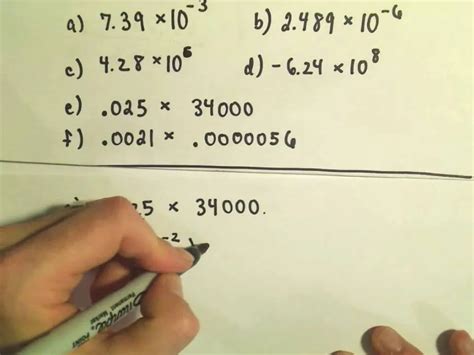 a) 7.39 × 10⁻³ b) 2.489 × 10⁻⁶
c) 4.28 × 10⁶ d) -6.24 × 10⁸
e) .025 × 34000
f) .0021 × .0000056
5 × 34000.
-2
Sharpie